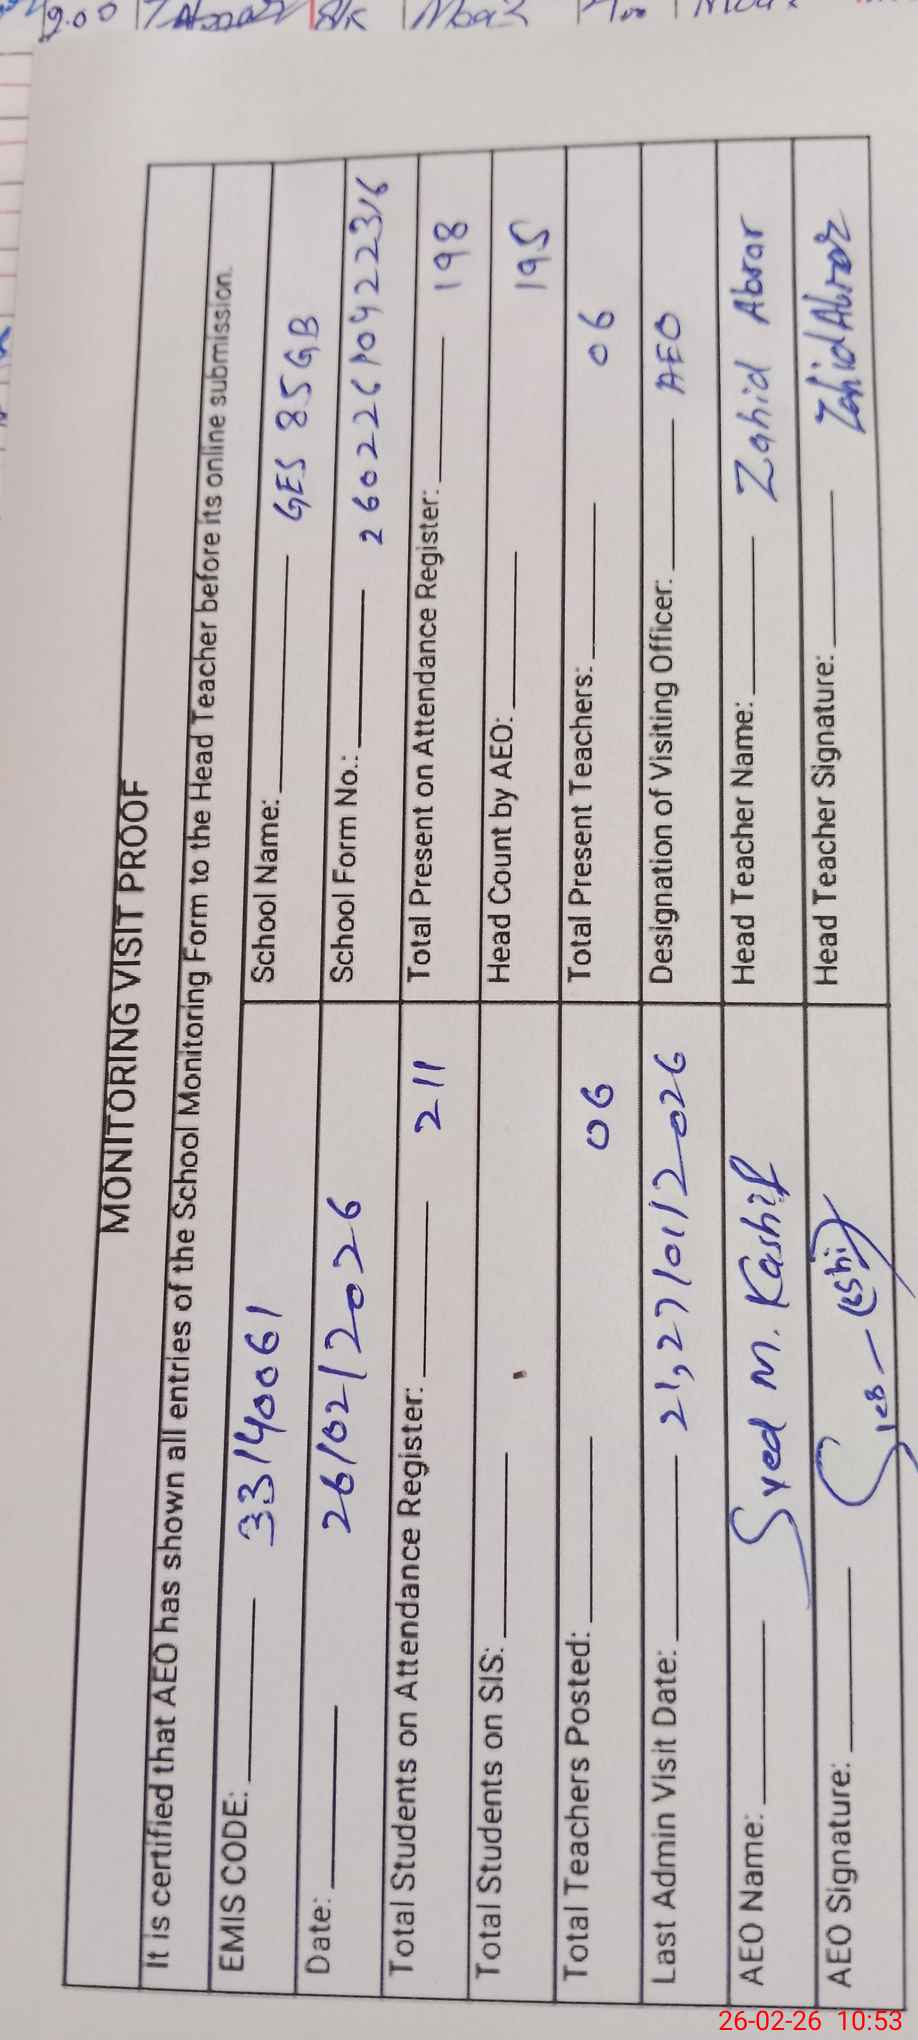 MONITORING VISIT PROOF
It is certified that AEO has shown all entries of the School Monitoring Form to the Head Teacher before its online submission.
EMIS CODE: 33140061 School Name: GES 85GB
Date: 26/02/2026 School Form No.: 26022610422316
Total Students on Attendance Register: 211 Total Present on Attendance Register: 198
Total Students on SIS: Head Count by AEO: 195
Total Teachers Posted: 06 Total Present Teachers: 06
Last Admin Visit Date: 21,27/01/2026 Designation of Visiting Officer: AEO
AEO Name: Syed M. Kashif Head Teacher Name: Zahid Abrar
AEO Signature: Head Teacher Signature: Zahid Abrar
26-02-26 10:53